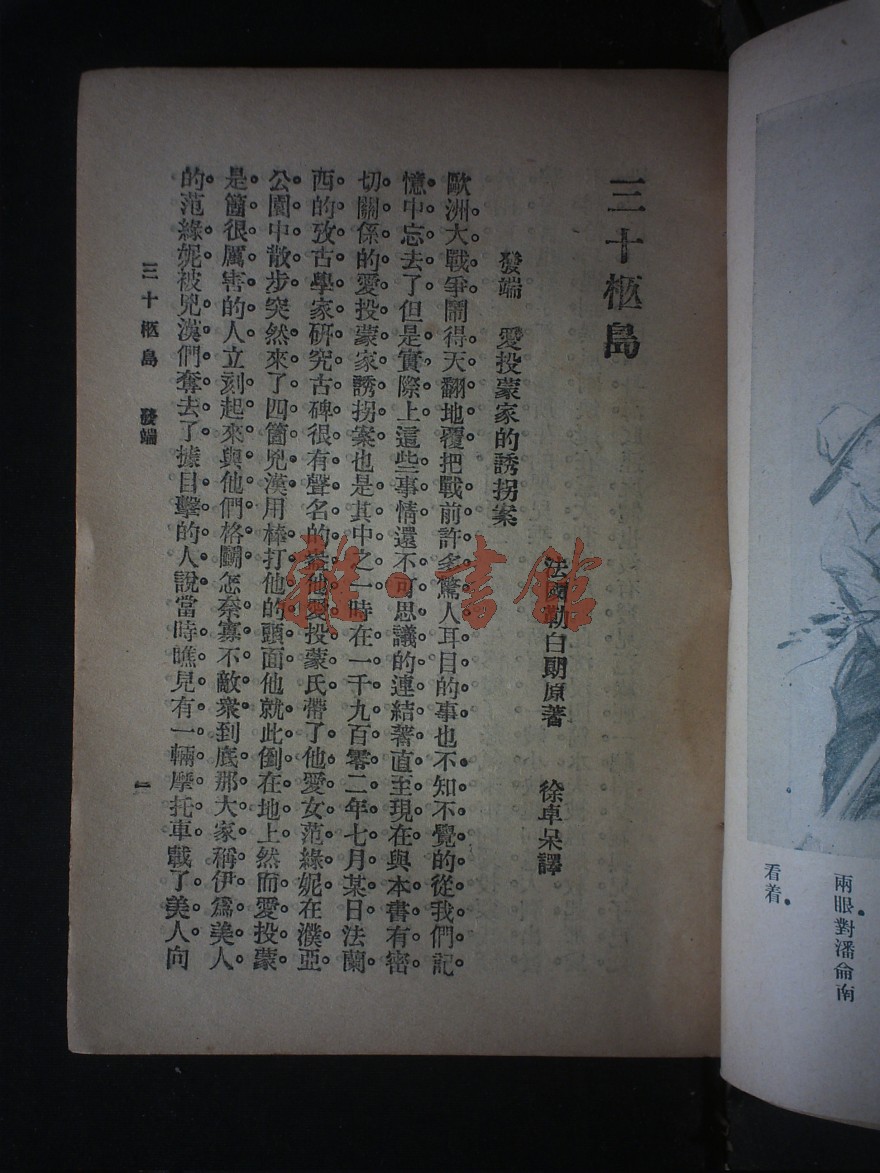 兩眼對潘侖南
看着。
三十柩島
發端　愛投蒙家的誘拐案
法國勒白朗原著　徐卓呆譯
歐洲大戰爭鬧得天翻地覆把戰前許多驚人耳目的事也不知不覺的從我們記
憶中忘去了但是實際上這些事情還不可思議的連結著直至現在與本書有密
切關係的愛投蒙家誘拐案也是其中之一時在一千九百零二年七月某日法蘭
西的攷古學家研究古碑很有聲名的愛投蒙氏帶了他愛女范綠妮在濮亞
公園中散步突然來了四箇兇漢用棒打他的頭面他就此倒在地上然而愛投蒙
是箇很厲害的人立刻起來與他們格鬭怎奈寡不敵衆到底那大家稱伊爲美人
的范綠妮被兇漢們奪去了據目擊的人說當時瞧見有一輛摩托車載了美人向
三十柩島　發端
一
雜·書館